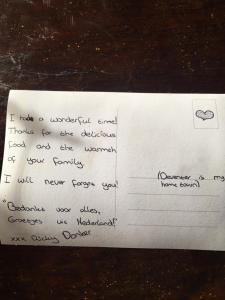 I had a wonderful time!
Thanks for the delicious
food and the warmth
of your family.
I will never forget you!
"Bedankt voor alles,
Groetjes uit Nederland!"
xxx
(Deventer is my
home town)